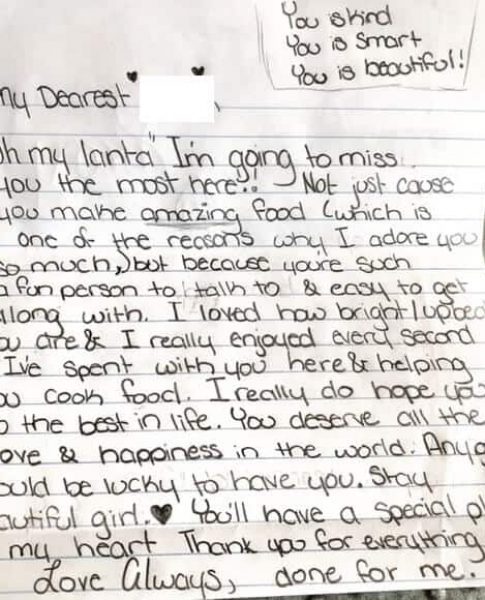 You is kind
You is Smart
You is beautiful!
My Dearest
Oh my lanta" I'm going to miss
you the most here!! Not just cause
you make amazing food (which is
one of the reasons why I adore you
so much), but because you're such
a fun person to talk to & easy to get
along with. I loved how bright/upbeat
you are & I really enjoyed every second
I've spent with you here & helping
you cook food. I really do hope you
the best in life. You deserve all the
love & happiness in the world. Any
would be lucky to have you. Stay
beautiful girl. You'll have a special
my heart Thank you for everything
Love Always, done for me.